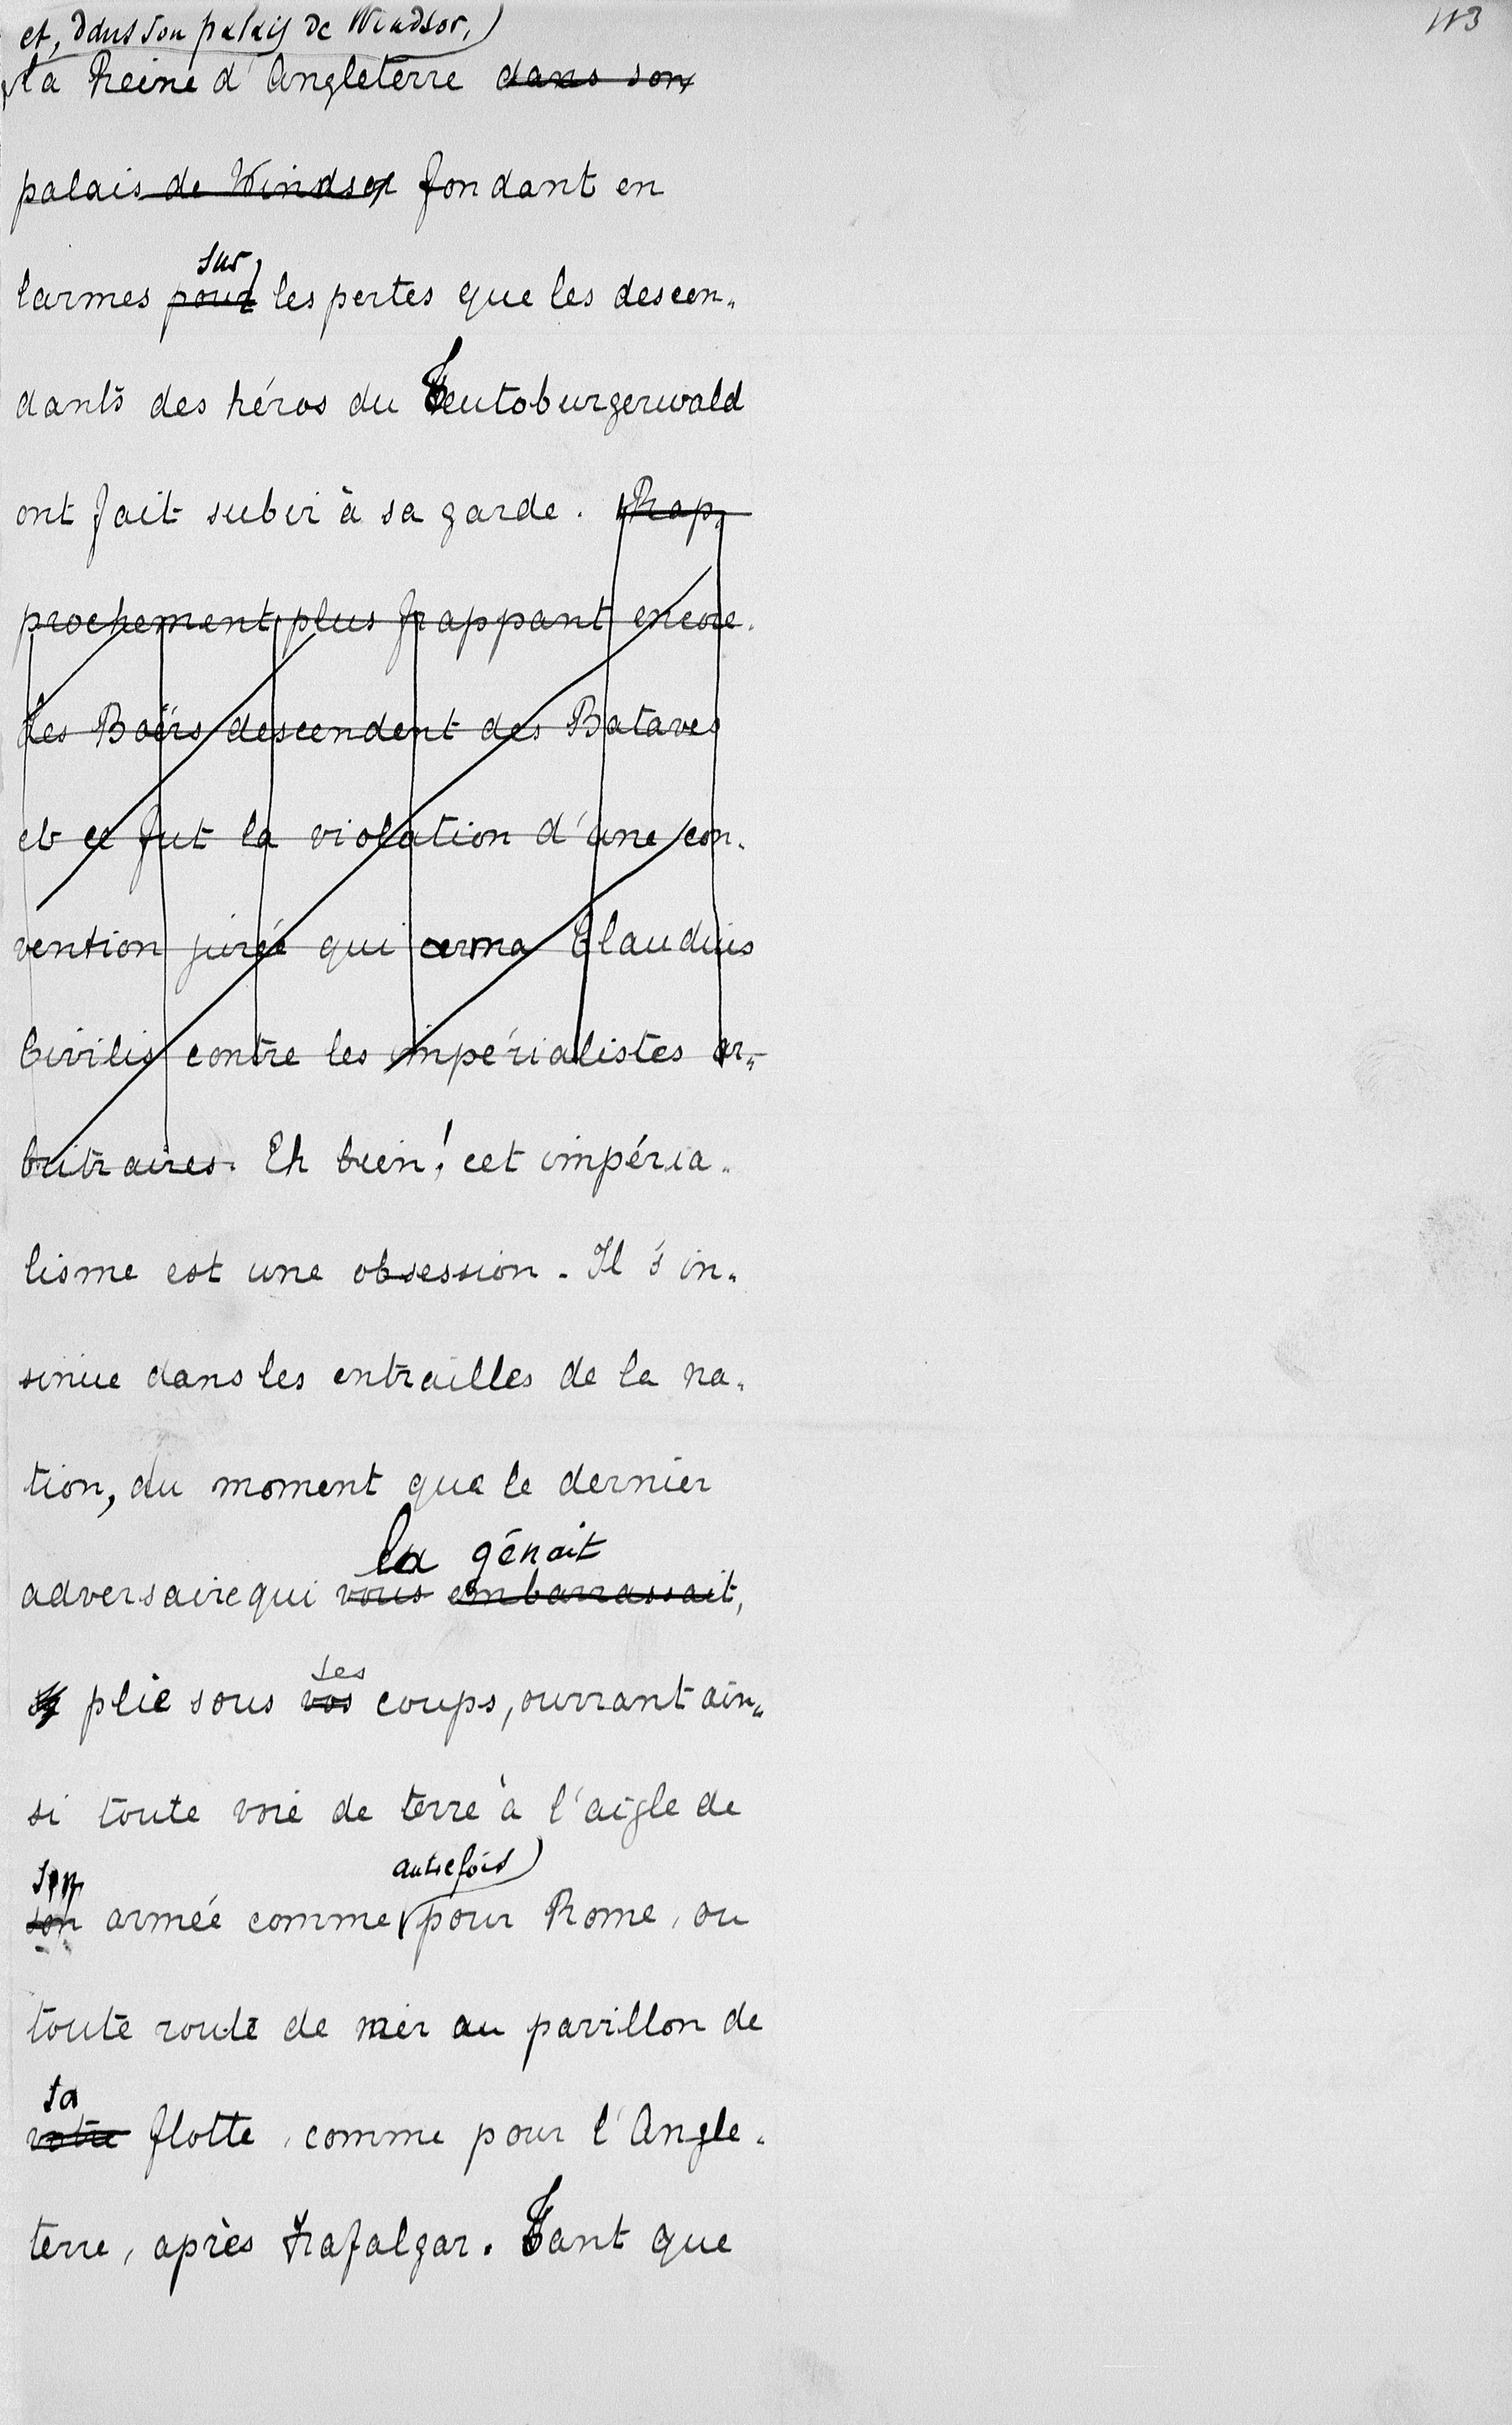 113
et, dans son palais de Windsor,
la Reine d'Angleterre dans son
palais de Windsor fondant en
sur
larmes pour les pertes que les descen-
dants des héros du Teutoburgerwald
ont fait subir à sa garde. Rap-
prochement plus frappant encore.
Les Boërs descendent des Bataves
et ce fut la violation d'une con-
vention jurée qui arma Claudius
Civilis contre les impérialistes ar-
bitraires. Eh bien! cet impéria-
lisme est une obsession. Il s'in-
sinue dans les entrailles de la na-
tion, du moment que le dernier
la gênait
adversaire qui vous embarrassait,
ses
plie sous vos coups, ouvrant ain-
si toute voie de terre à l'aigle de
autrefois
son armée comme pour Rome, ou
toute route de mer au pavillon de
sa
votre flotte, comme pour l'Angle-
terre, après Trafalgar. Tant que